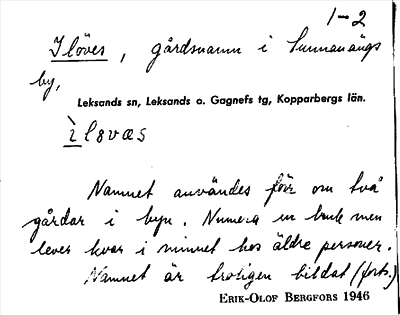 1-2
Ilöves, gårdsnamn i Sunnanängs
by,
Leksands sn, Leksands o. Gagnefs tg, Kopparbergs län.
ìlövæs
Namnet användes förr om två
gårdar i byn. Numera ur bruk men
lever kvar i minnet hos äldre personer.
Namnet är troligen bildat (forts.)
ERIK-OLOF BERGFORS 1946